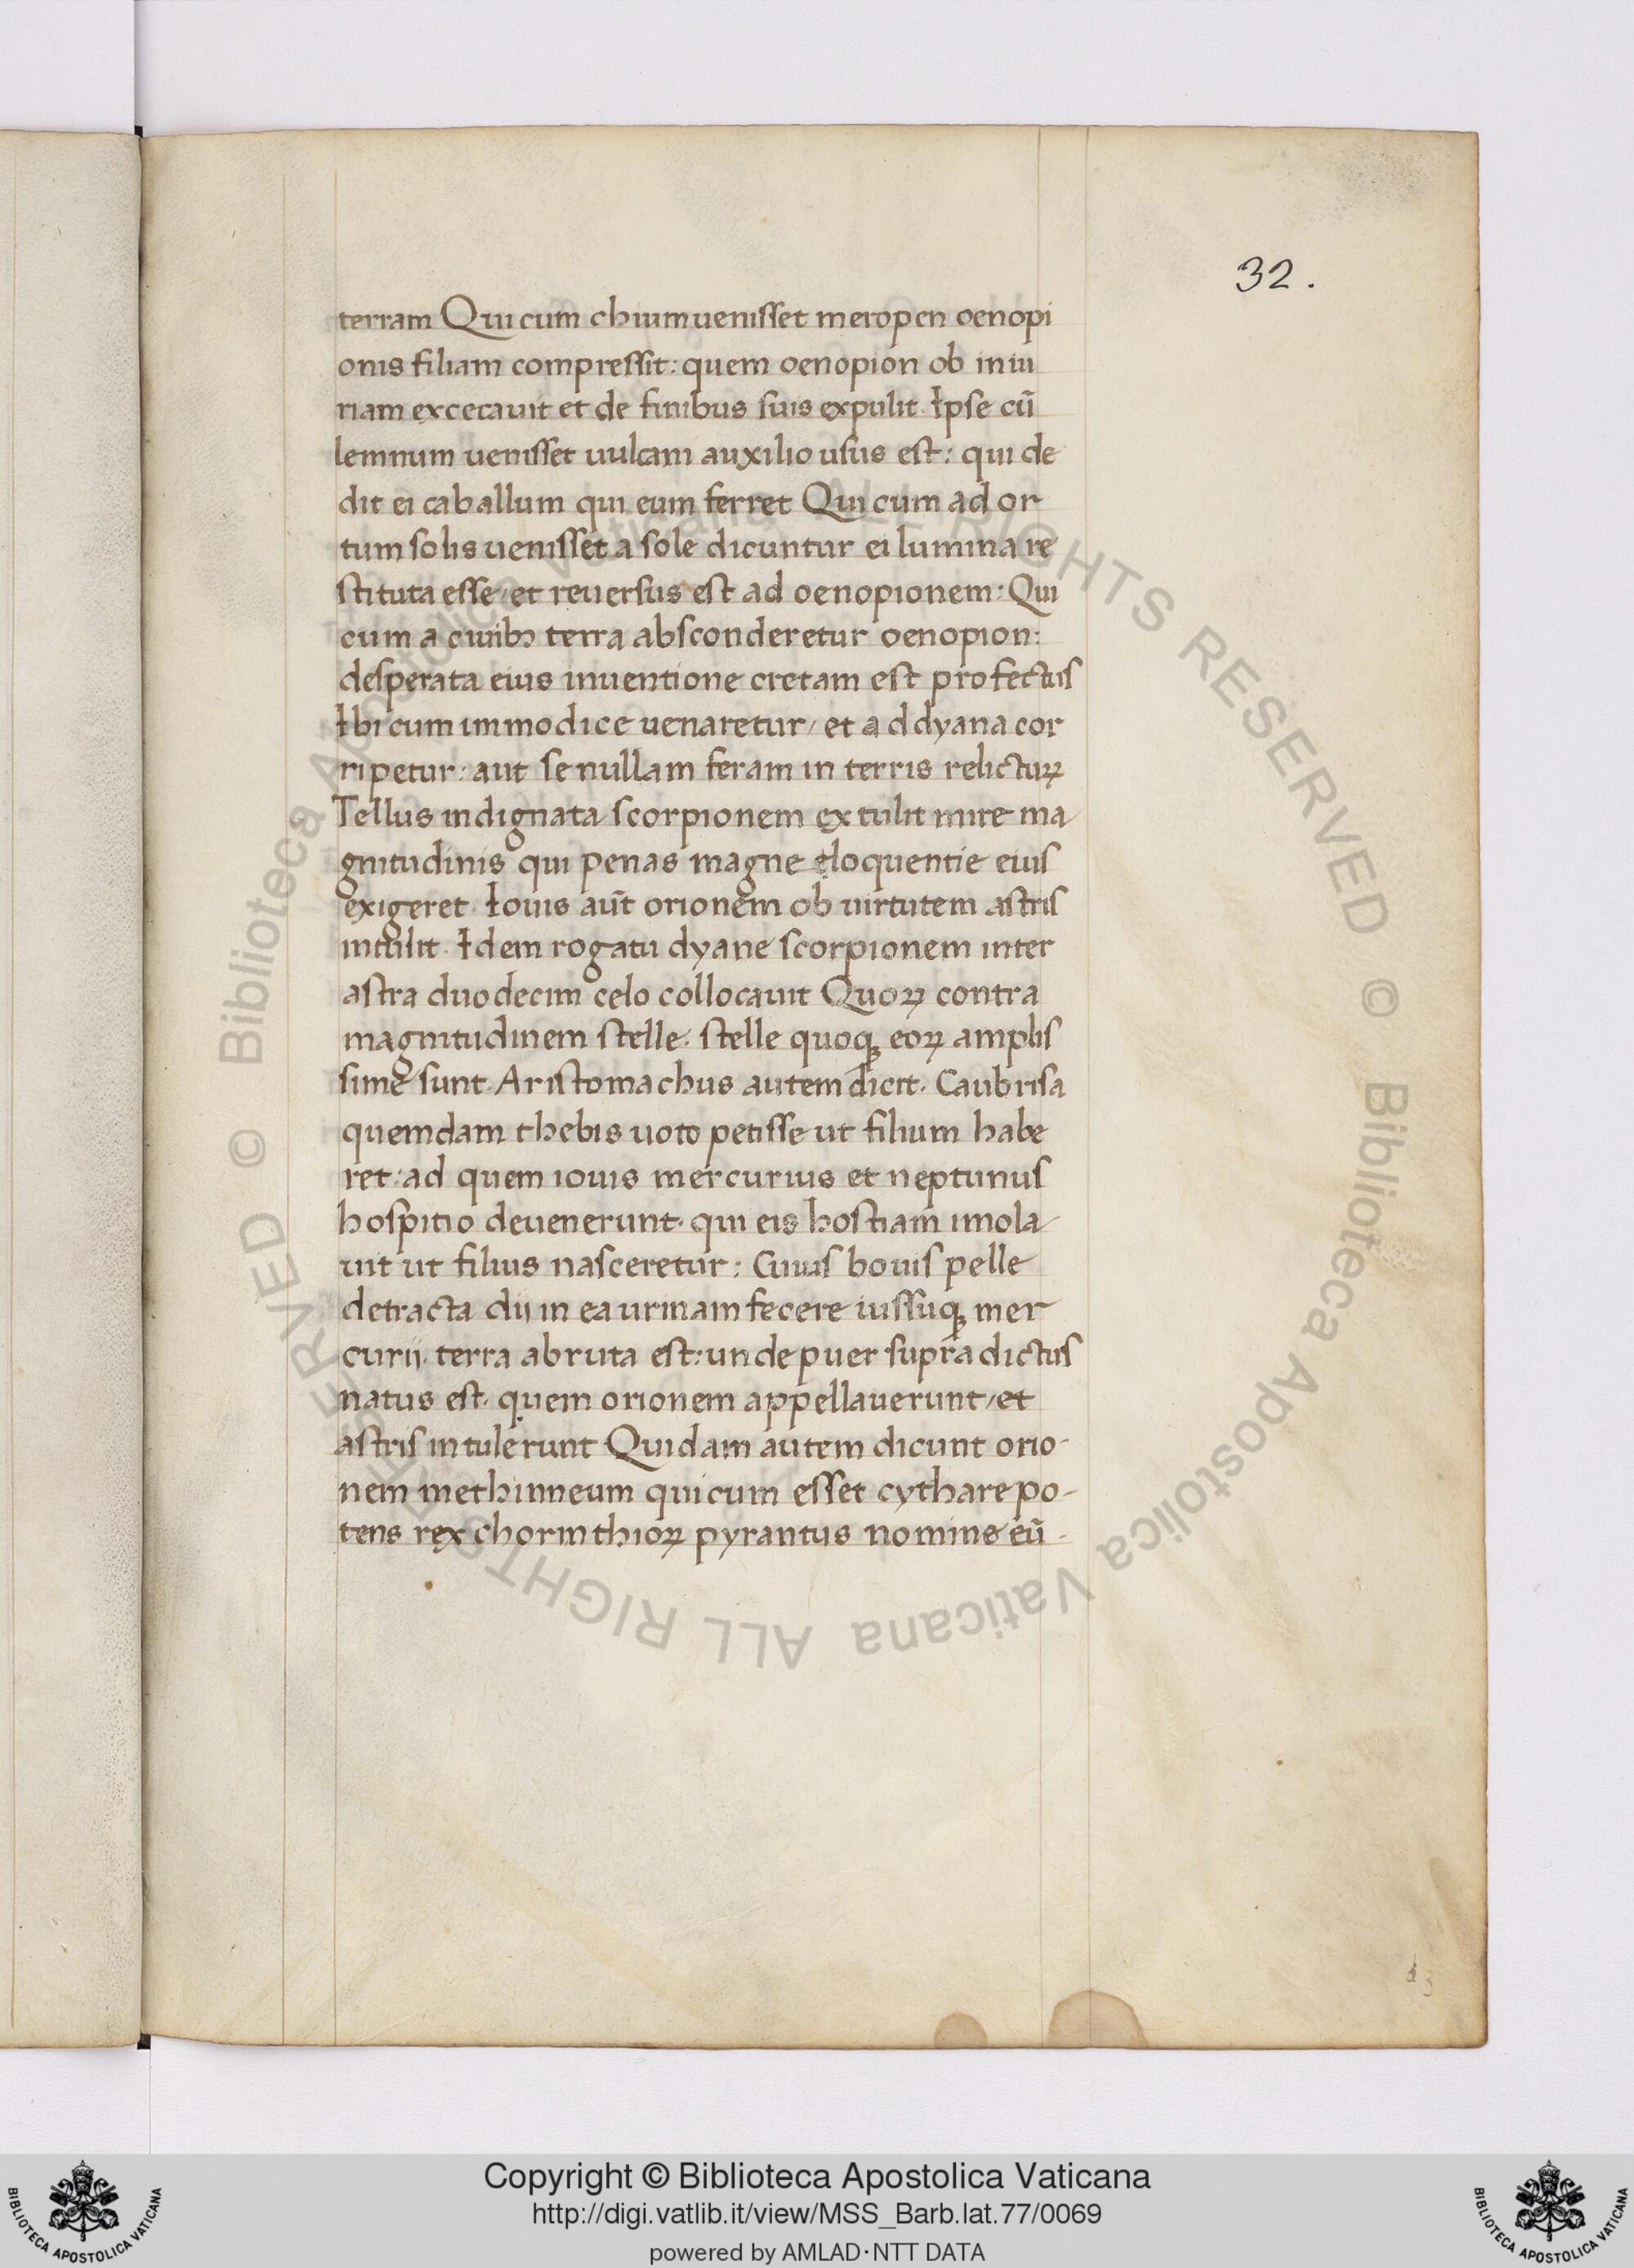 32.
terram Qui cum chium uenisset meropen oenopi
onis filiam compressit: quem oenopion ob iniu
riam excecauit et de finibus suis expulit. Ipse cū
lemnum uenisset uulcani auxilio usus est: qui de
dit ei caballum qui eum ferret Qui cum ad or
tum solis uenisset a sole dicuntur ei lumina re
stituta esse/ et reuersus est ad oenopionem: Qui
cum a ciuibꝫ terra absconderetur oenopion:
desperata eius inuentione cretam est profectus
Ibi cum immodice uenaretur/ et ad dyana cor
ripetur: aut se nullam feram in terris relicturꝝ
Tellus indignata scorpionem extulit mire ma
gnitudinis qui penas magne eloquentie eius
exigeret. Iouis aūt orionem ob uirtutem astris
intulit. Idem rogatu dyane scorpionem inter
astra duodecim celo collocauit Quoꝝ contra
magnitudinem stelle. stelle quoqꝫ eoꝝ amplis
sime sunt. Aristomachus autem dicit. Caubrisa
quemdam thebis uoto petisse ut filium habe
ret: ad quem iouis mercurius et neptunus
hospitio deuenerunt. qui eis hostiam imola
uit ut filius nasceretur: Cuius bouis pelle
detracta dij in ea urinam fecere iussuqꝫ mer
curij. terra abruta est: unde puer supra dictus
natus est. quem orionem appellauerunt/ et
astris intulerunt Quidam autem dicunt orio-
nem methinneum qui cum esset cythare po-
tens rex chorinthioꝝ pyrantus nomine eū
Copyright © Biblioteca Apostolica Vaticana
http://digi.vatlib.it/view/MSS_Barb.lat.77/0069
powered by AMLAD·NTT DATA
BIBLIOTECA APOSTOLICA VATICANA
BIBLIOTECA APOSTOLICA VATICANA
© Biblioteca Apostolica Vaticana ALL RIGHTS RESERVED
© Biblioteca Apostolica Vaticana ALL RIGHTS RESERVED